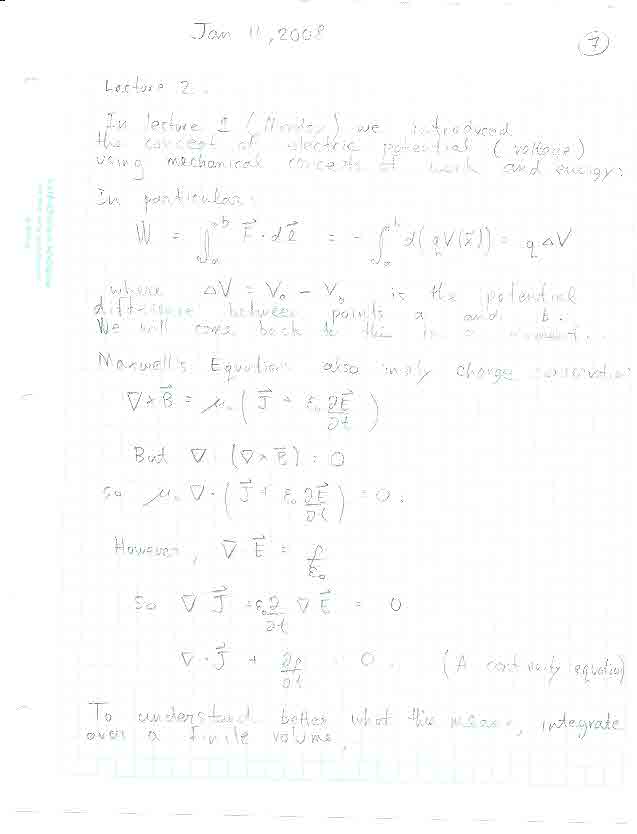 Jan 11, 2008
7
Lecture 2.
In lecture 1 (Monday) we introduced
the concept of electric potential (voltage)
using mechanical concepts of work and energy.
In particular:
W = ∫ₐᵇ F⃗ · dℓ⃗ = - ∫ₐᵇ d(qV(x⃗)) = q ΔV
where ΔV = Vₐ - V_b is the potential
difference between points a and b.
We will come back to this in a moment...
Maxwell's Equations also imply charge conservation
∇ × B⃗ = μ₀ ( J⃗ + ε₀ ∂E⃗/∂t )
But ∇ · (∇ × B⃗) = 0
so μ₀ ∇ · ( J⃗ + ε₀ ∂E⃗/∂t ) = 0.
However, ∇ · E⃗ = ρ/ε₀
So ∇ · J⃗ + ε₀ ∂/∂t ∇ · E⃗ = 0
∇ · J⃗ + ∂ρ/∂t = 0. (A continuity equation)
To understand better what this means, integrate
over a finite volume,